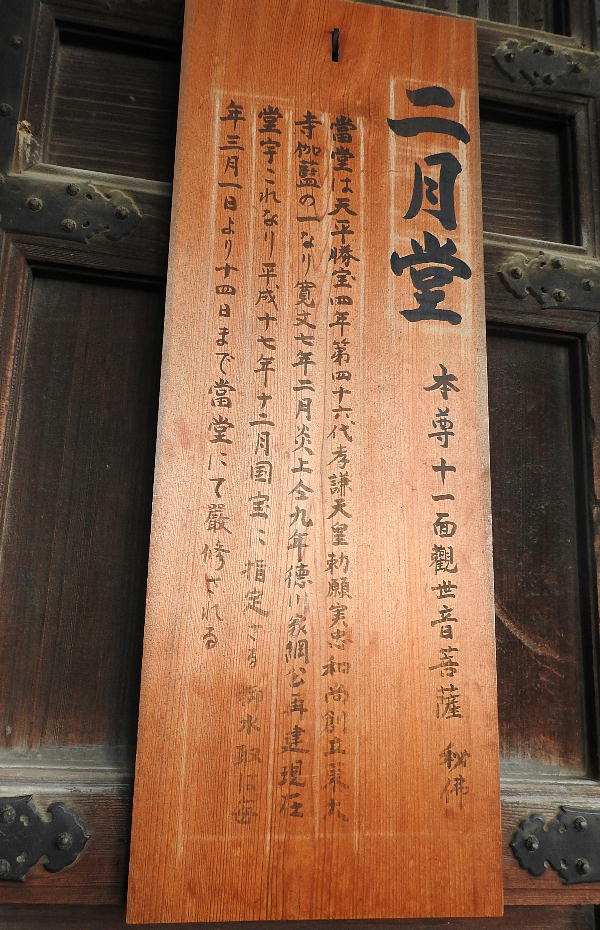 二月堂 本尊十一面觀世音菩薩 秘佛
當堂は天平勝宝四年第四十六代孝謙天皇勅願実忠和尚創立東大
寺伽藍の一なり寛文七年二月炎上仝九年德川家綱公再建現在
堂宇これなり平成十七年十二月国宝に指定さる 御水取は毎
年三月一日より十四日まで當堂にて嚴修される